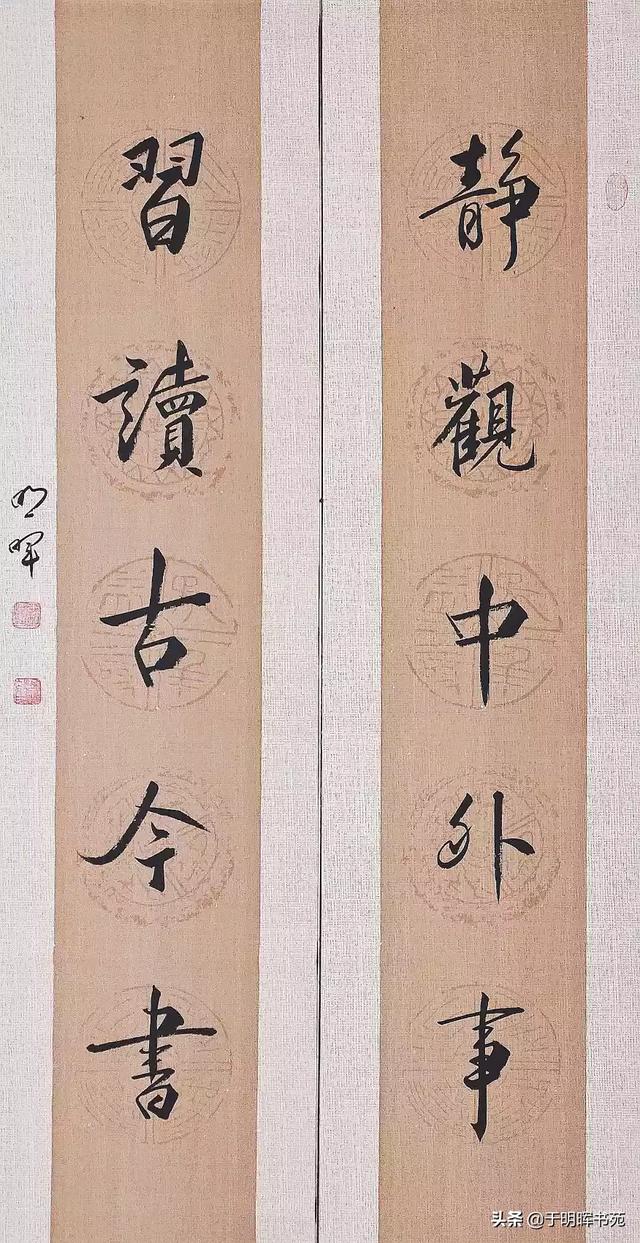 靜觀中外事
習讀古今書
明暉
头条 @于明晖书苑